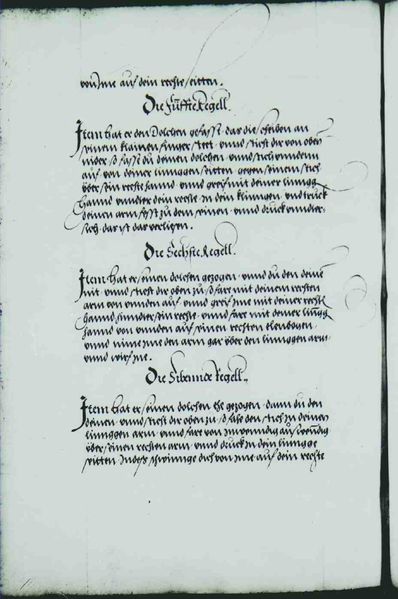 von Ime auf dein rechte seitten.
Die Fünffte Regell.
Item hat er den dolchen gefasst das die scheiben an
seinem klainen finger stet vnnd sticht dir von oben
nider so fass du deinen dolchen vnnd stich vnnden
auf von deiner linnggen seitten gegen seinem stich
vber sein rechte hannd vnnd greif mit deiner lingg
hannd vnnder dein rechte in dein klingen vnd truck
deinen arm
sich das ist das verligen.
Die Sechste Regell.
Item hat er seinen dolchen gezogen vnnd du den deinē
nit vnnd sticht dir oben zu so far mit deinem rechten
arm von vnnden auf vnnd greif Ime mit deiner rechtē
hannd hinnder sein rechte vnnd far mit deiner lingg
hannd von vnnden auf seinen rechten elenbogen
vnnd nime Ime den arm gar vber den linnggen arm
vnnd wirf Ine.
Die Sibannde Regell.
Item hat er seinen dolchen ehe gezogen dann du den
deinen vnnd sticht dir oben zu so fahe den stich In deinen
linnggen arm vnnd far von Inwenndig auswendig
vber seinen rechten arm vnnd druck In dein lingge
seitten Indess schwinge dich von Ime auf dein rechte